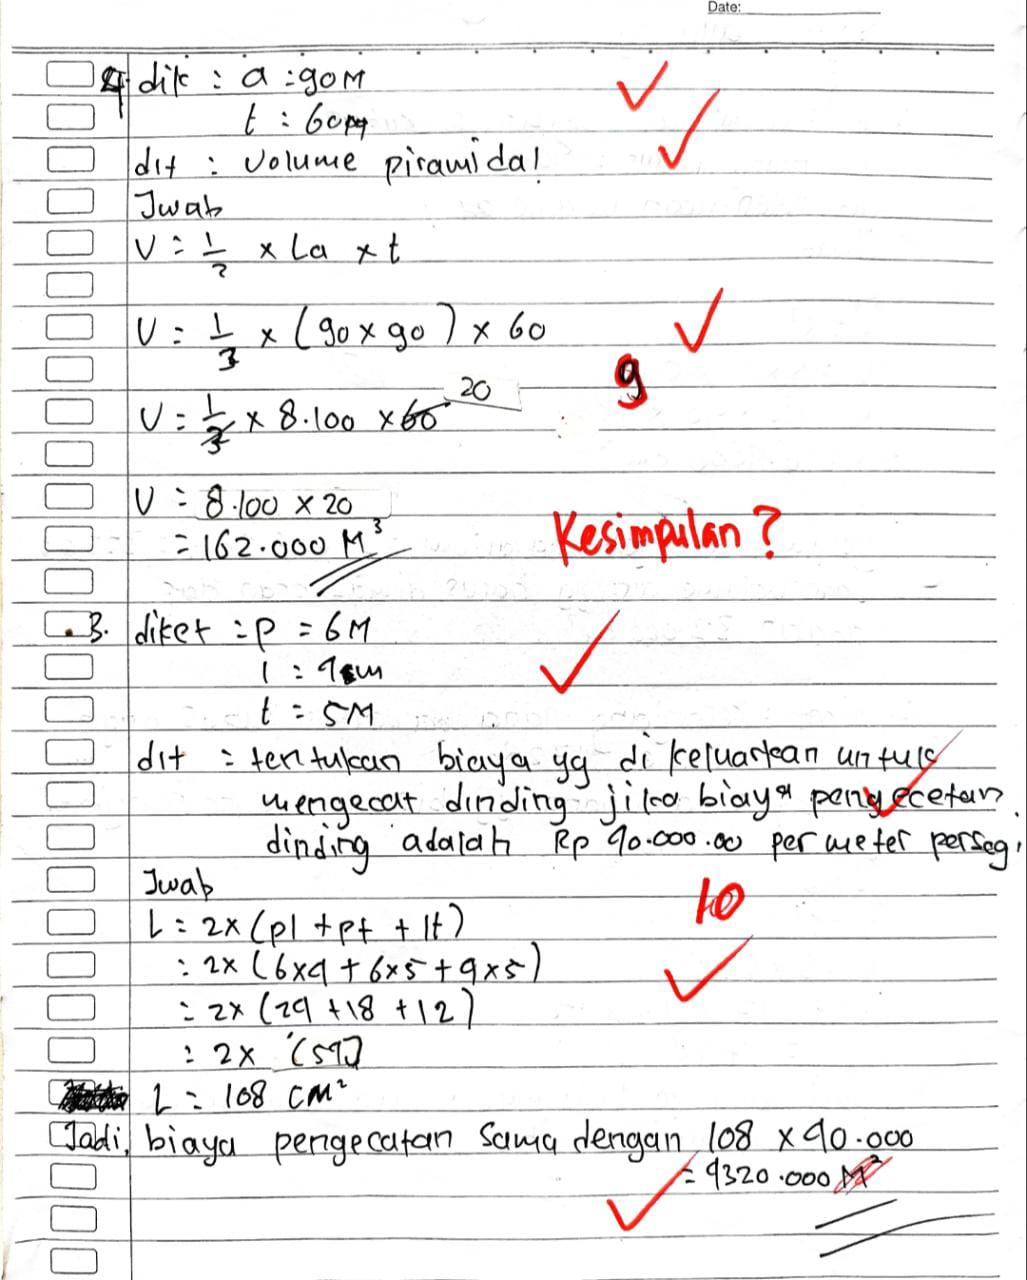 Date:
4. dik : a : 90 M
t : 60 M
dit : Volume piramida!
Jwab
V = 1/3 x La x t
V = 1/3 x (90 x 90) x 60
9
20
V = 1/3 x 8.100 x 60
V = 8.100 x 20
= 162.000 M³
Kesimpulan?
3. diket : P = 6 M
l : 4 m
t = 5M
dit : tentukan biaya yg di keluarkan untuk
mengecat dinding jika biaya pengecetan
dinding adalah Rp 40.000.00 per meter persegi
Jwab
10
L = 2x (pl + pt + lt)
: 2x (6x4 + 6x5 + 4x5)
= 2x (24 + 18 + 12)
: 2x (54)
L = 108 CM²
Jadi, biaya pengecatan sama dengan 108 x 40.000
= 4320.000 M²